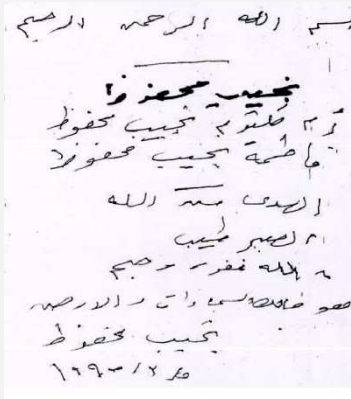 بسم الله الرحمن الرحيم
نجيب محفوظ
أم كلثوم نجيب محفوظ
فاطمة نجيب محفوظ
الهدى من الله
الصبر طيب
الله غفور رحيم
هو السماوات والارض
نجيب محفوظ